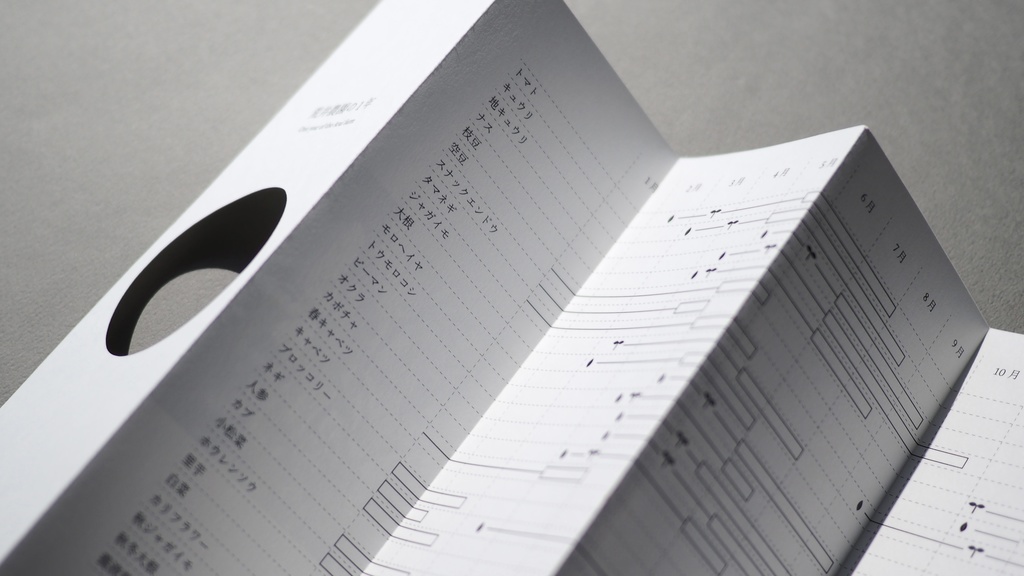 トマト
キュウリ
地キュウリ
ナス
枝豆
空豆
スナックエンドウ
タマネギ
ジャガイモ
大根
モロヘイヤ
トウモロコシ
ピーマン
オクラ
カボチャ
春キャベツ
キャベツ
ブロッコリー
ネギ
人参
カブ
小松菜
ホウレンソウ
里芋
白菜
カリフラワー
秋ジャガイモ
秋冬大根
1月
2月
3月
4月
5月
6月
7月
8月
9月
10月